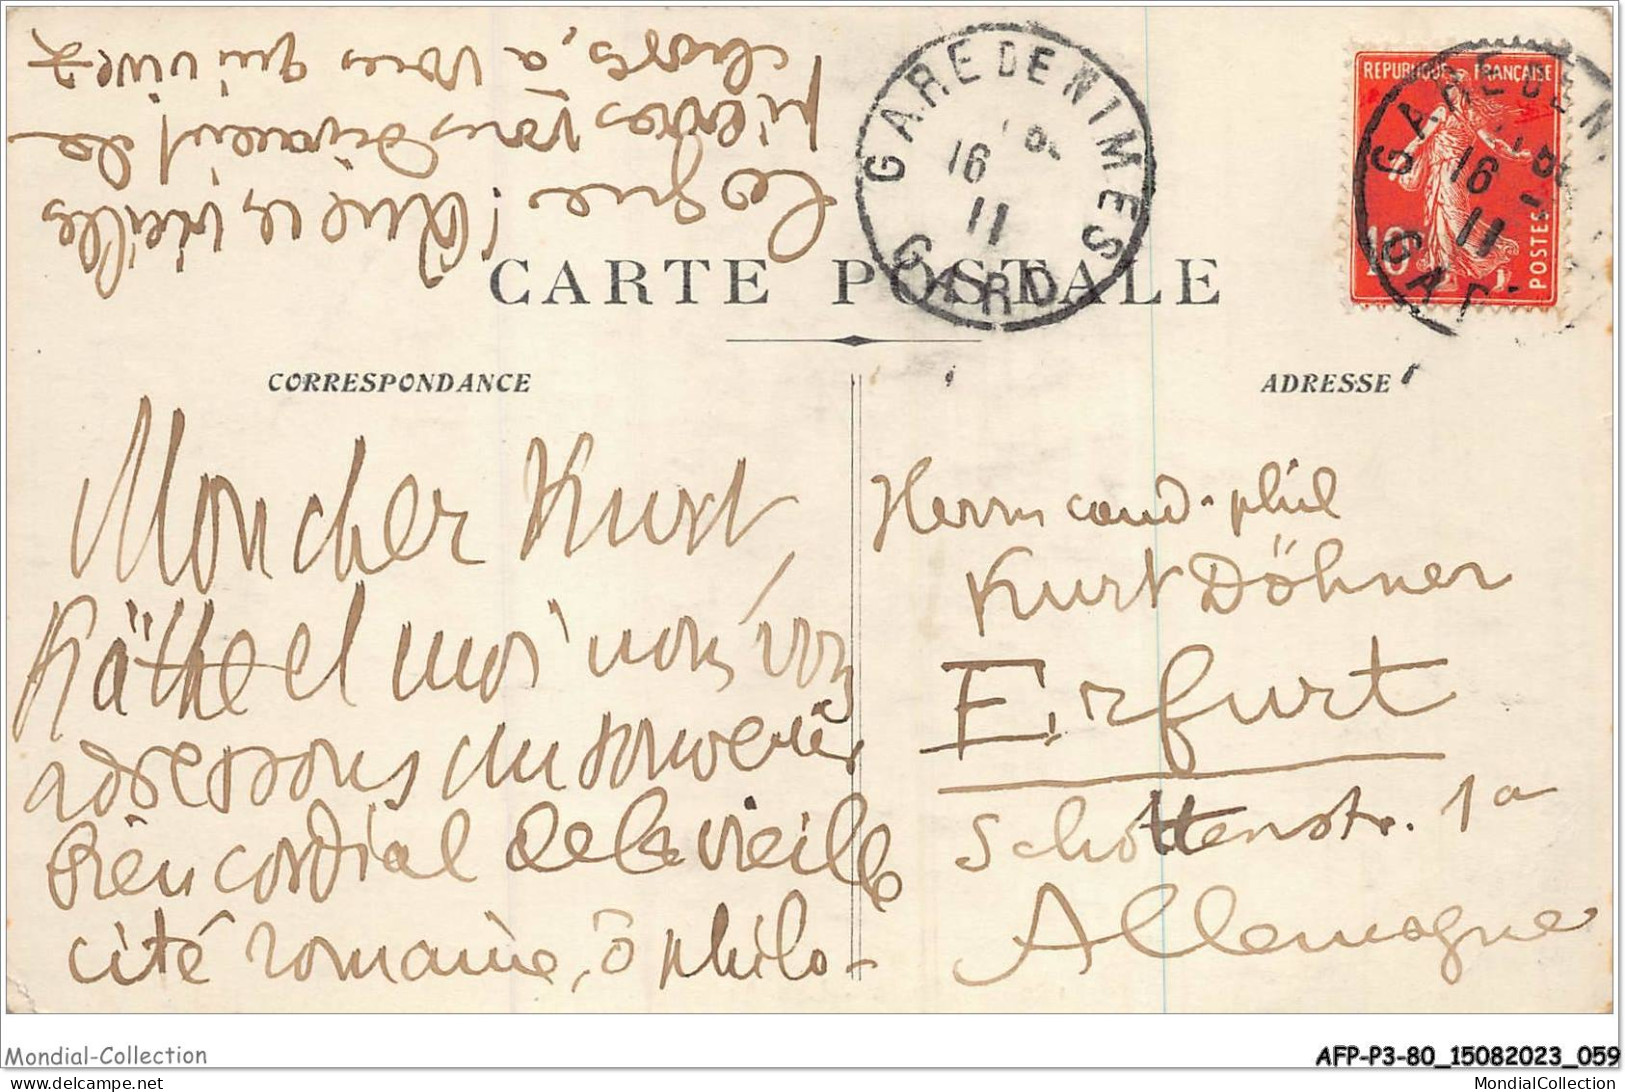 CARTE POSTALE
CORRESPONDANCE
ADRESSE
Mon cher Kurt,
Käthe et moi nous vous
adressons un souvenir
bien cordial de la vieille
cité romaine, ô philo-
logue! Que ces vieilles
pierres vous disent de
choses, à vous qui vivez
Herrn cand. phil
Kurt Döhner
Erfurt
Schottenstr. 1a
Allemagne
GARE DE NIMES
16
11
GARD
REPUBLIQUE FRANÇAISE
10
POSTES
GARE DE N
16
11
GAR
Mondial-Collection
AFP-P3-80_15082023_059
delcampe.net
MondialCollection